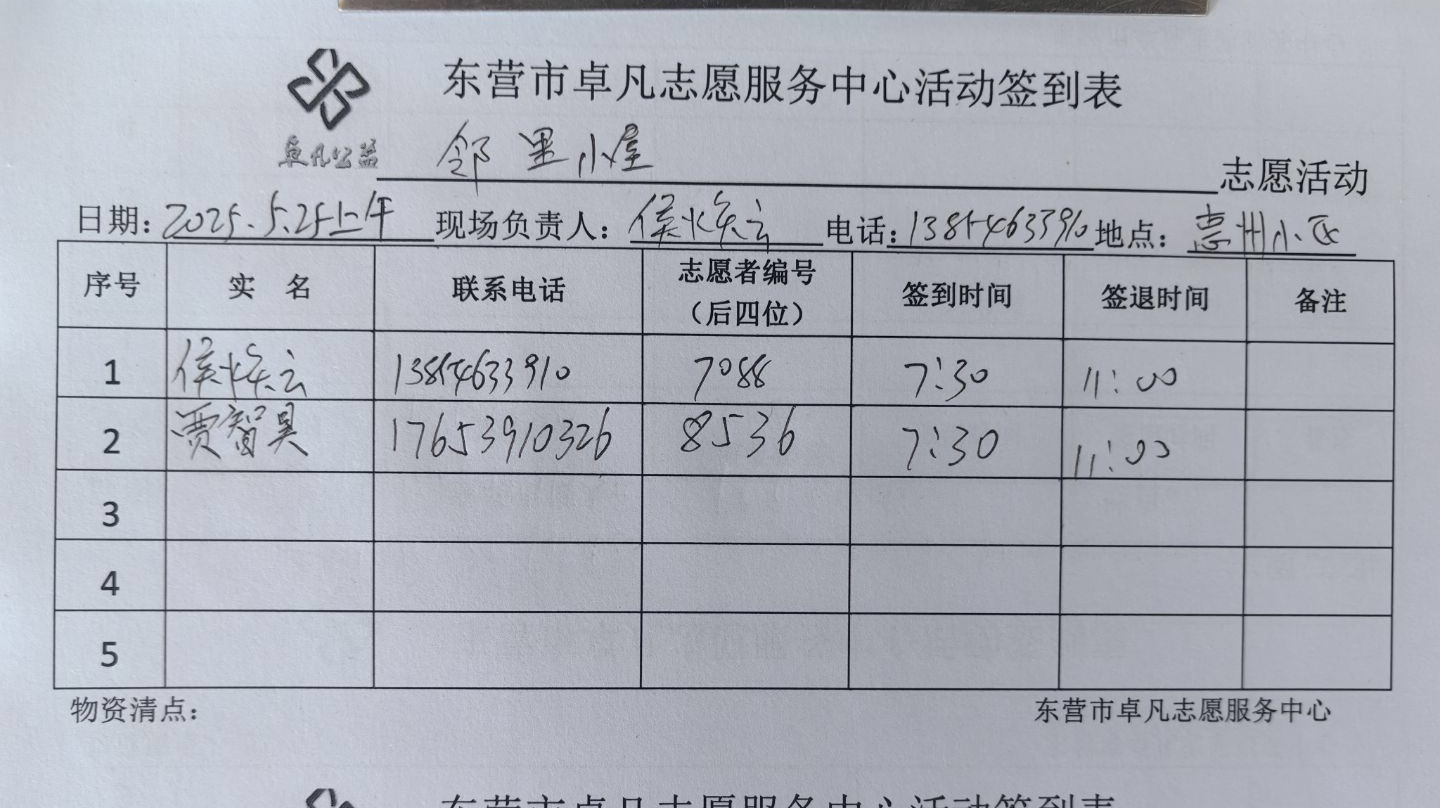 东营市卓凡志愿服务中心活动签到表
卓凡公益
邻里小屋 志愿活动
日期：2025.5.25上午 现场负责人：侯焕云 电话：13854633910 地点：惠州小区
序号 实 名 联系电话 志愿者编号（后四位） 签到时间 签退时间 备注
1 侯焕云 13854633910 7088 7:30 11:00
2 贾智昊 17653910326 8536 7:30 11:00
3
4
5
物资清点： 东营市卓凡志愿服务中心
东营市卓凡志愿服务中心活动签到表